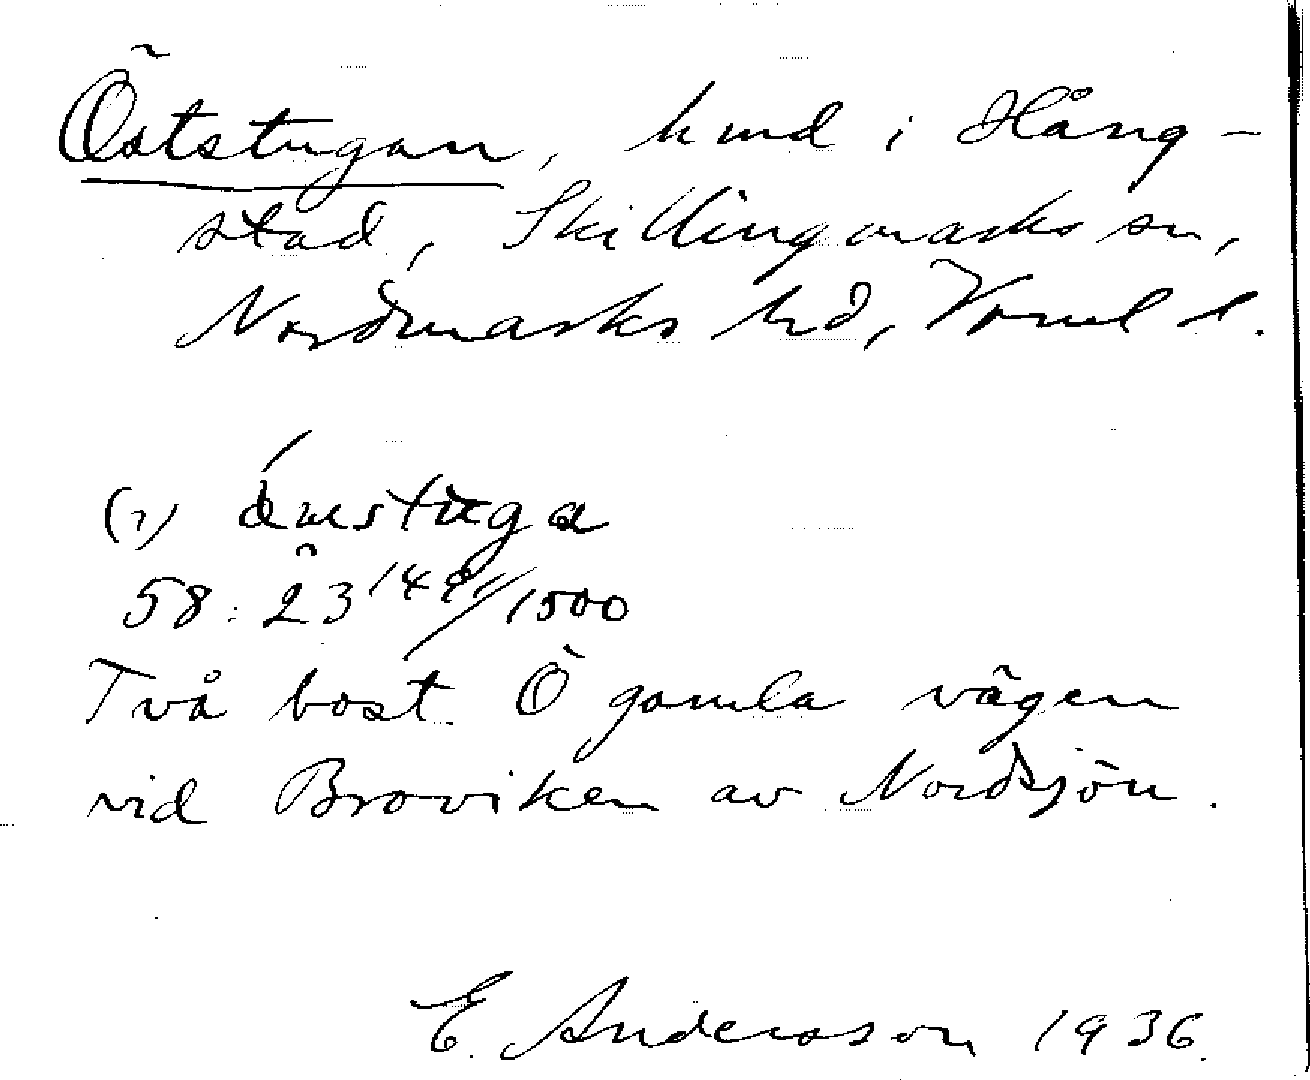 Öststugan, hmd i Häng-
stad, Skillingmarks sn,
Nordmarks hd, Vrml l.
(i)
58:23 1491/1500
Två bost. Ö gamla vägen
vid Broviken av Nordsjön.
E. Andersson 1936.